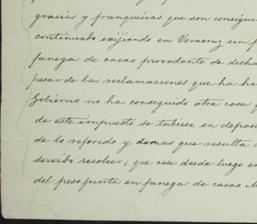 gracias y franquicias que son consigui
continuado exijiendo en Veracruz un p
fanega de cacao procedente de dicha
pesar de las reclamaciones que ha he
Gobierno no ha conseguido otra cosa q
de este impuesto se tubiese en deposi
de lo referido y demas que resulta d
servido resolver, que cese desde luego e
del peso fuerte en fanega de cacao